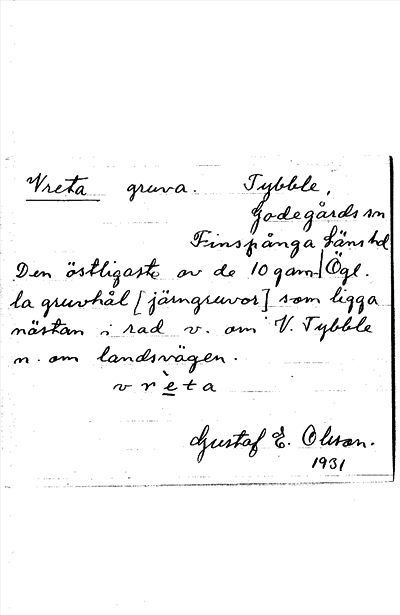 Vreta gruva. Tybble,
Godegårds sn
Finspånga läns hd
Den östligaste av de 10 gam- Ögl.
la gruvhål [järngruvor] som ligga
nästan i rad v. om V. Tybble
n. om landsvägen.
vrèta
Gustaf E. Olson.
1931